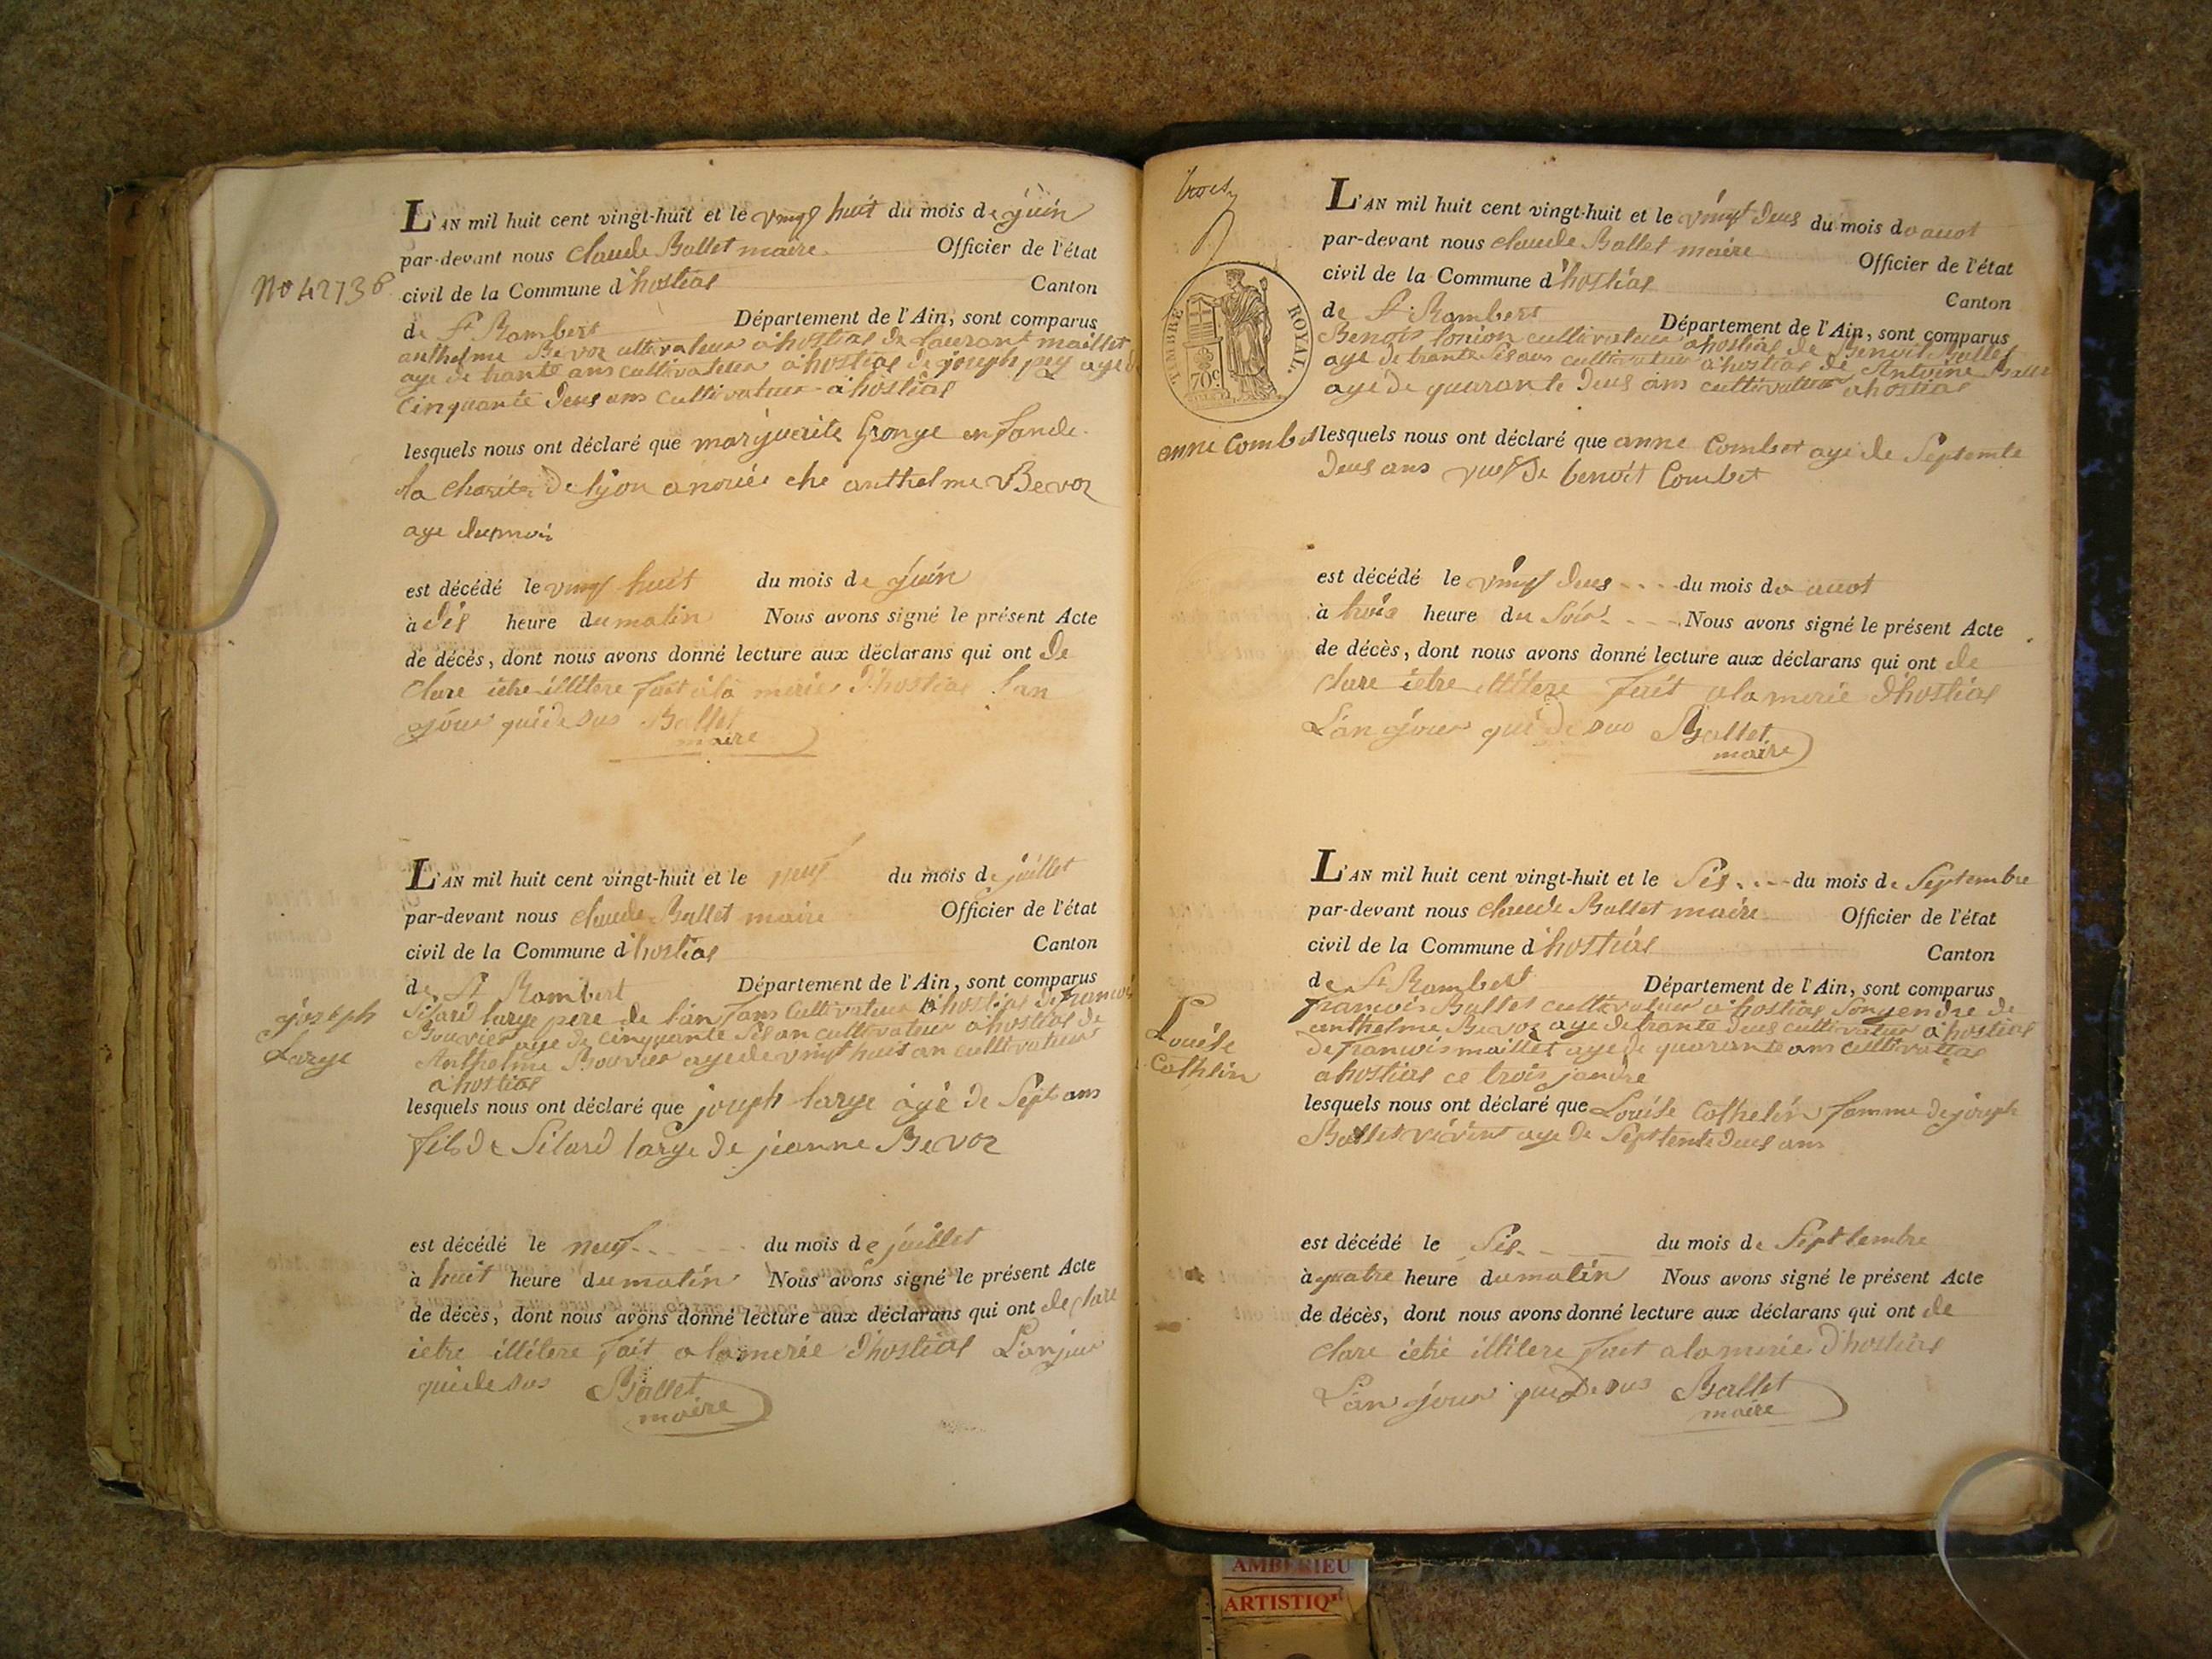 L'AN mil huit cent vingt-huit et le vingt huit du mois de juin
par-devant nous claude Ballet maire Officier de l'état
No 42736
civil de la Commune d'hostias Canton
de St Rambert Département de l'Ain, sont comparus
anthelme Bevoz cultivateur a hostias de laurant maillet
age de trante ans cultivateur a hostias de joseph pey age de
cinquante deus ans cultivateur a hostias
lesquels nous ont déclaré que marguerite enfande
la charite de lyon anouie che anthelme Bevoz
age
est décédé le vingt huit du mois de juin
à dis heure du matin Nous avons signé le présent Acte
de décès, dont nous avons donné lecture aux déclarans qui ont de
clare ietre illitere fait a la merie d'hostias lan
jour qui de sus Ballet
maire
L'AN mil huit cent vingt-huit et le neuf du mois de juillet
par-devant nous claude Ballet maire Officier de l'état
civil de la Commune d'hostias Canton
de St Rambert Département de l'Ain, sont comparus
joseph
Large
Silard large pere de lanfans cultivateur a hostias de francois
Bouvier age de cinquante sis an cultivateur a hostias de
Anthelme Bouvier age de vingt huit an cultivateur
a hostias
lesquels nous ont déclaré que joseph large agé de Sept ans
fils de Silard large de jeanne Bevoz
est décédé le neuf du mois de juillet
à huit heure du matin Nous avons signé le présent Acte
de décès, dont nous avons donné lecture aux déclarans qui ont de clare
ietre illitere fait a la merie d'hostias L'an jour
qui de sus Ballet
maire
trois
L'AN mil huit cent vingt-huit et le vingt deus du mois do auot
par-devant nous claude Ballet maire Officier de l'état
civil de la Commune d'hostias Canton
de St Rambert Département de l'Ain, sont comparus
TIMBRE ROYAL.
70c
Benoit cultivateur a hostias de Benoit Ballet
age de trante sis ans cultivateur a hostias de Antoine Ballet
aye de quarante deus ans cultivateur a hostias
anne Combet
lesquels nous ont déclaré que anne Combet aye de Septente
deus ans vuef de benoit Combet
est décédé le vingt deus du mois do auot
à trois heure du soir Nous avons signé le présent Acte
de décès, dont nous avons donné lecture aux déclarans qui ont de
clare ietre illitere fait a la merie d'hostias
L'an jour qui de sus Ballet
maire
L'AN mil huit cent vingt-huit et le Sis du mois de Septembre
par-devant nous claude Ballet maire Officier de l'état
civil de la Commune d'hostias Canton
de St Rambert Département de l'Ain, sont comparus
Louise
Cathlin
francois Ballet cultivateur a hostias Son gendre de
anthelme Bevoz aye de trante deus cultivateur a hostias
de francois maillet aye de quarante ans
a hostias ce trois jandre
lesquels nous ont déclaré que Louise Cathelin famme de joseph
Ballet aye de Septtente deus ans
est décédé le Sis du mois de Septtembre
à quatre heure du matin Nous avons signé le présent Acte
de décès, dont nous avons donné lecture aux déclarans qui ont de
clare ietre illitere fait a la merie d'hostias
L'an jour qui de sus Ballet
maire
AMBERIEU
ARTISTIQ